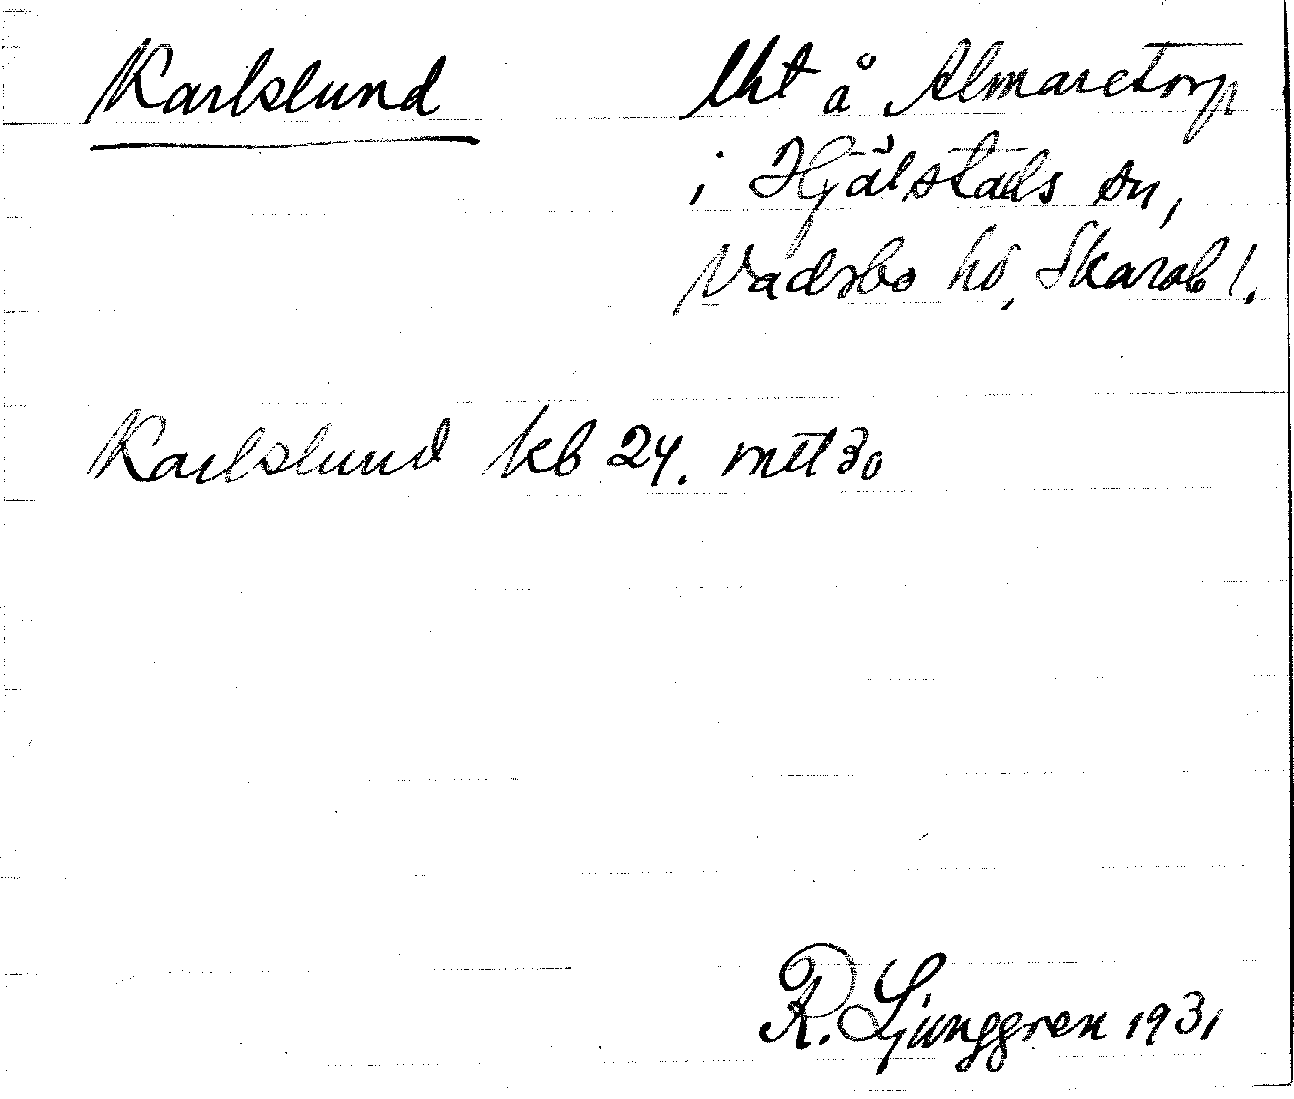 Karlslund
Uht å Almaretorp
i Hjälstads sn,
Vadsbo hd, Skarab l.
Karlslund kb 24. mtl 30
R. Ljunggren 1931